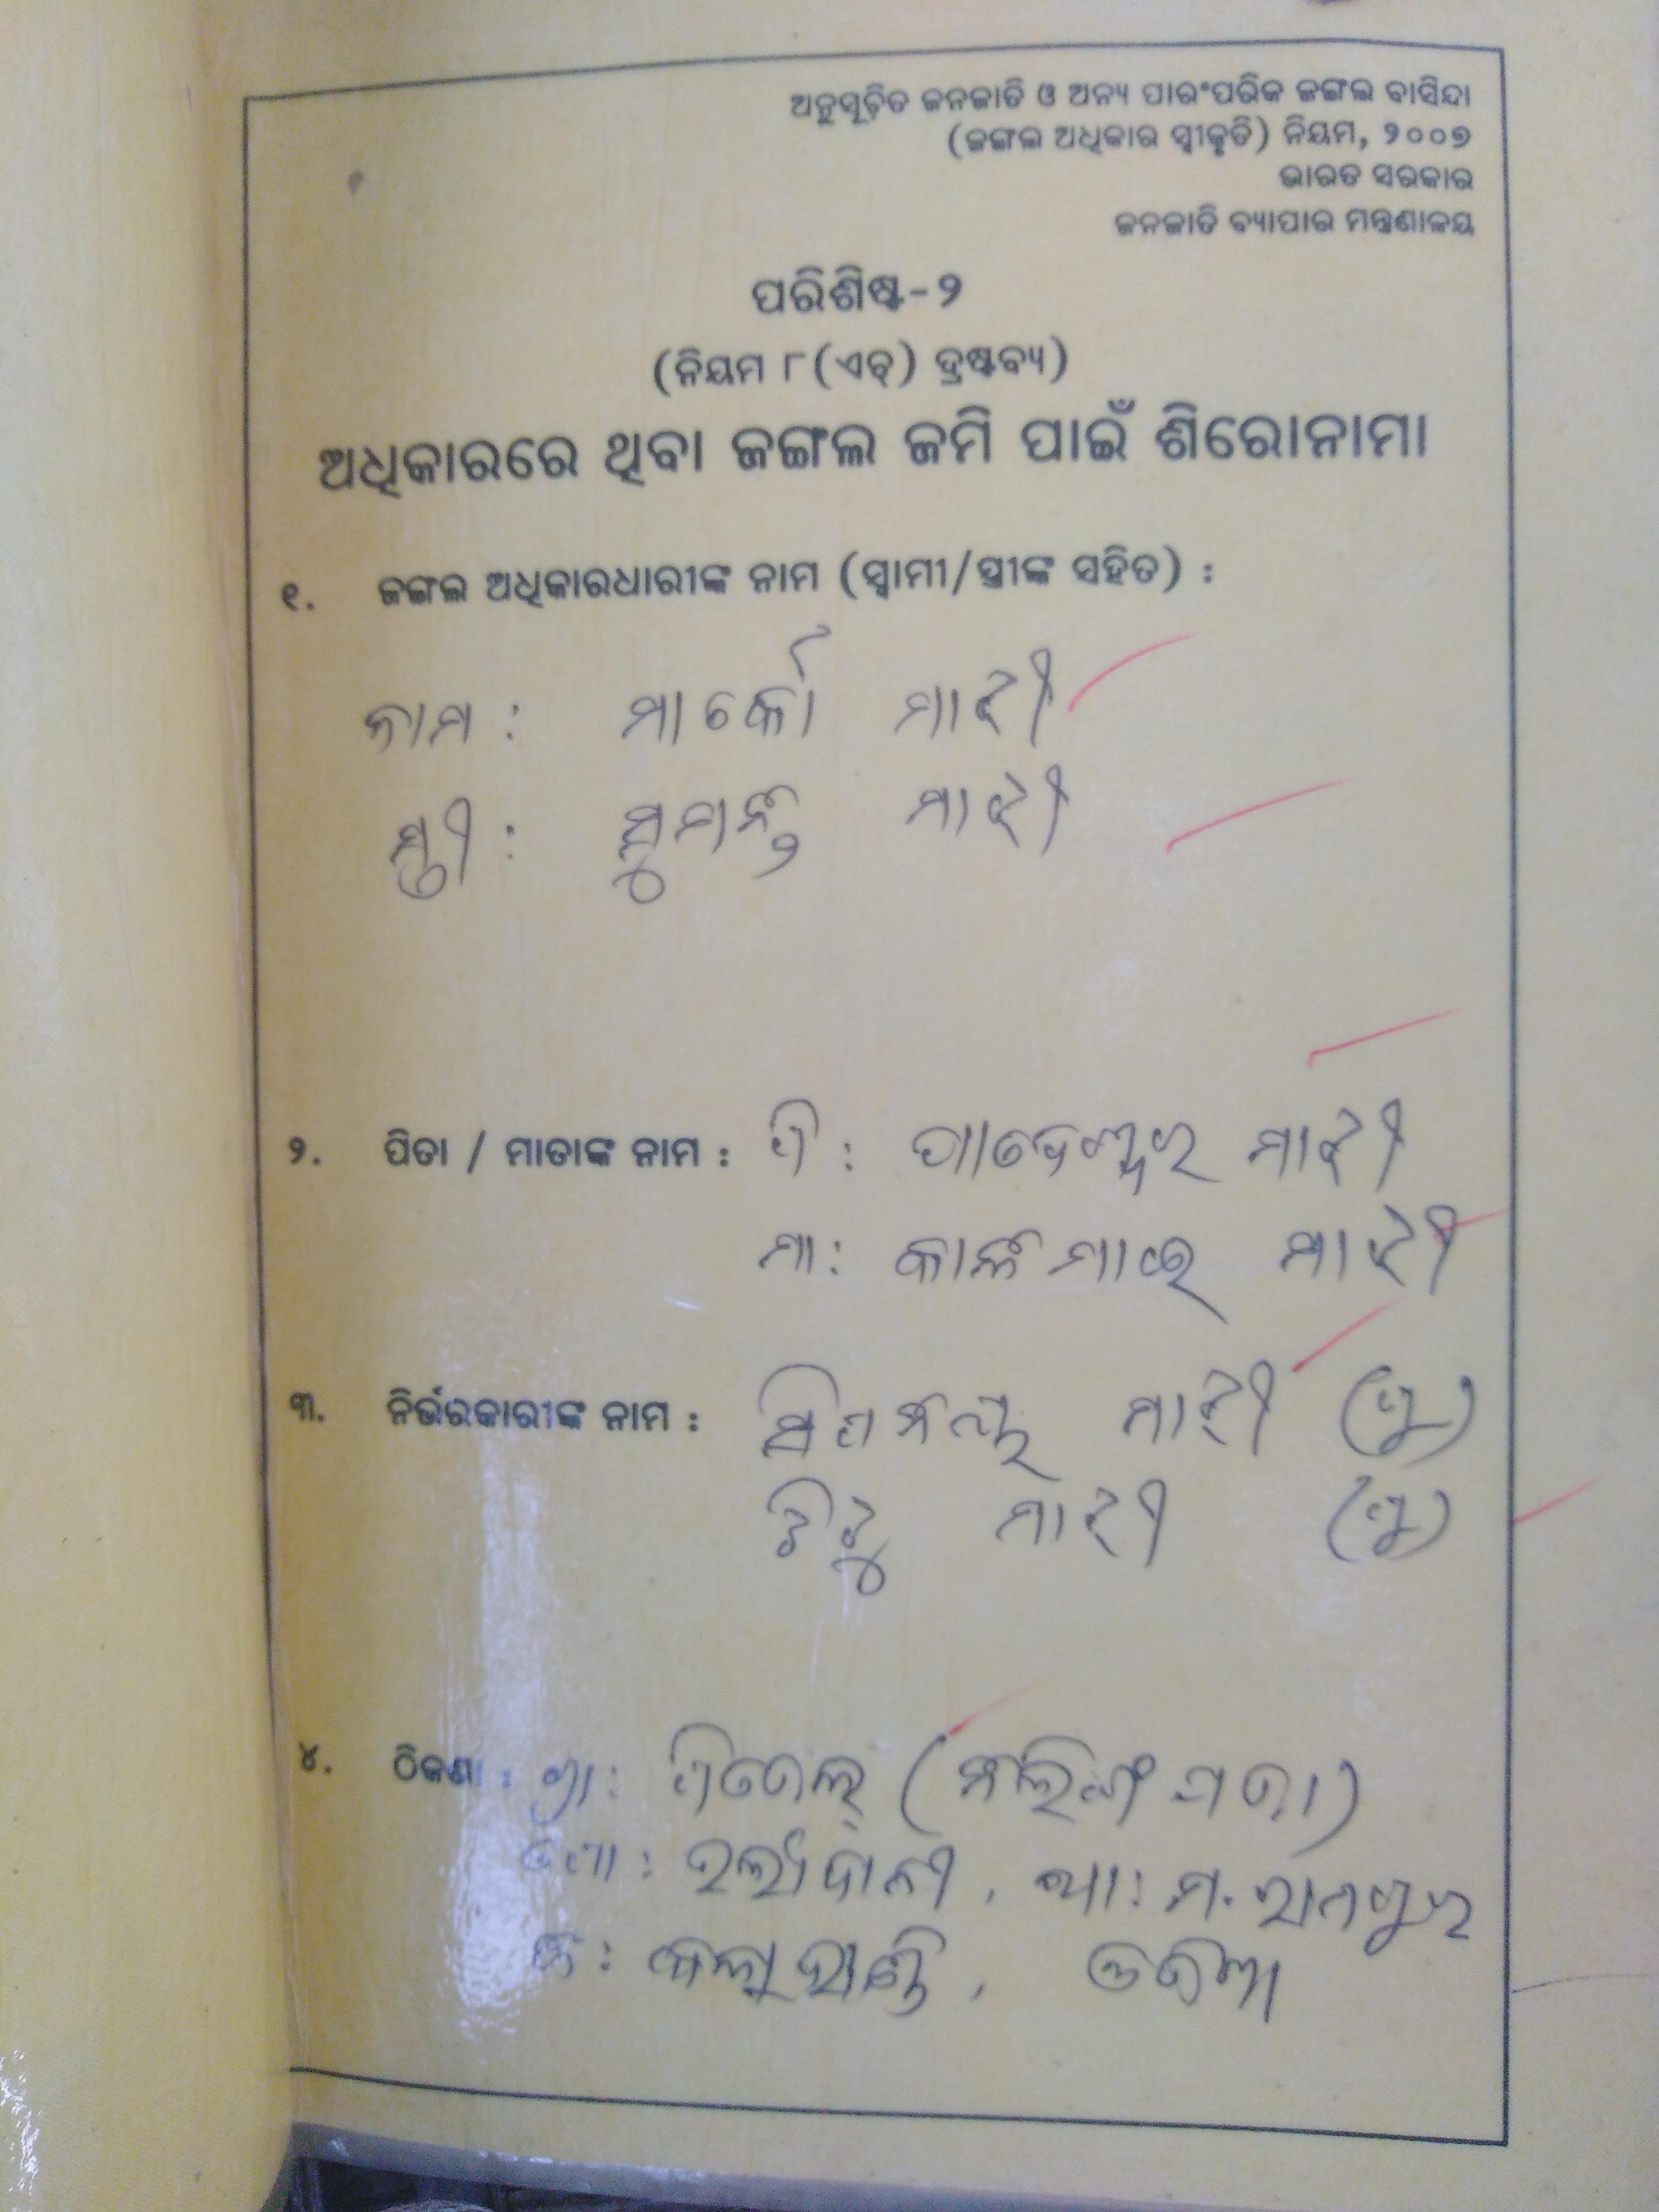 ଅନୁସୂଚିତ ଜନଜାତି ଓ ଅନ୍ୟ ପାରଂପରିକ ଜଙ୍ଗଲ ବାସିନ୍ଦା
(ଜଙ୍ଗଲ ଅଧିକାର ସ୍ୱୀକୃତି) ନିୟମ, ୨୦୦୭
ଭାରତ ସରକାର
ଜନଜାତି ବ୍ୟାପାର ମନ୍ତ୍ରଣାଳୟ
ପରିଶିଷ୍ଟ-୨
(ନିୟମ ୮(ଏଚ୍) ଦ୍ରଷ୍ଟବ୍ୟ)
ଅଧିକାରରେ ଥିବା ଜଙ୍ଗଲ ଜମି ପାଇଁ ଶିରୋନାମା
୧. ଜଙ୍ଗଲ ଅଧିକାରଧାରୀଙ୍କ ନାମ (ସ୍ୱାମୀ/ସ୍ତ୍ରୀଙ୍କ ସହିତ) :
ନାମ : ମାର୍କୋ ମାଝୀ
ସ୍ତ୍ରୀ : ମାଝୀ
୨. ପିତା / ମାତାଙ୍କ ନାମ : ପି : ମାଝୀ
ମା : ମାଝୀ
୩. ନିର୍ଭରକାରୀଙ୍କ ନାମ : ମାଝୀ (ପୁ)
ମାଝୀ (ପୁ)
୪. ଠିକଣା : ଗ୍ରା :
ପୋ : ଥା : ମ. ରାମପୁର
ଜି : କଳାହାଣ୍ଡି, ଓଡିଶା